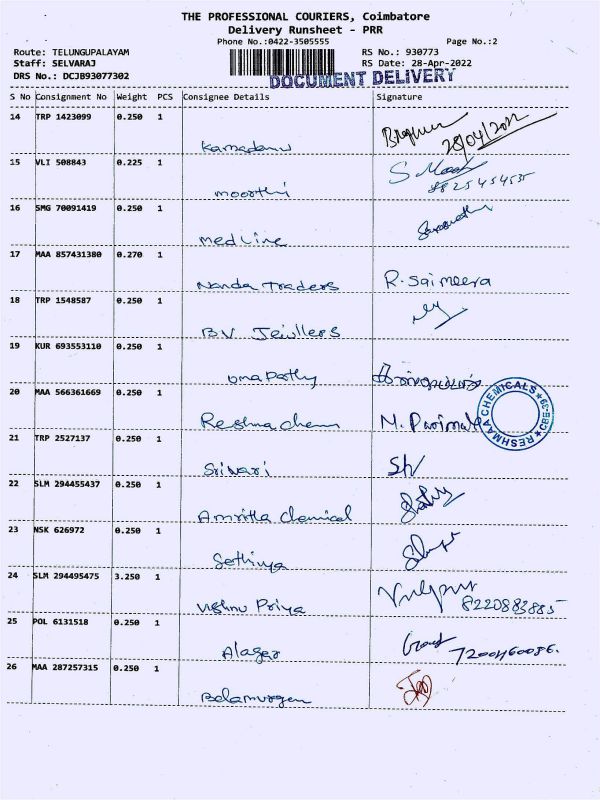 THE PROFESSIONAL COURIERS, Coimbatore
Delivery Runsheet - PRR
Phone No.:0422-3505555 Page No.:2
Route: TELUNGUPALAYAM RS No.: 930773
Staff: SELVARAJ RS Date: 28-Apr-2022
DRS No.: DCJB93077302
DOCUMENT DELIVERY
S No Consignment No Weight PCS Consignee Details Signature
14 TRP 1423099 0.250 1
Kamadenu 28/04/2022
15 VLI 508843 0.225 1
moorthi
16 SMG 70091419 0.250 1
medline
17 MAA 857431380 0.270 1
Nanda Traders R. Saimeera
18 TRP 1548587 0.250 1
BV Jeiullers
19 KUR 693553110 0.250 1
Uma Pathy
20 MAA 566361669 0.250 1
Reshma chem M. Parimala
RESHMAA CHEMICALS ★ CBE-39 ★
21 TRP 2527137 0.250 1
Srivari
22 SLM 294455437 0.250 1
Amritha chemical
23 NSK 626972 0.250 1
Sethiya
24 SLM 294495475 3.250 1
Vishnu Priya 8220883885
25 POL 6131518 0.250 1
Alagar 7200460086.
26 MAA 287257315 0.250 1
Belamurgen